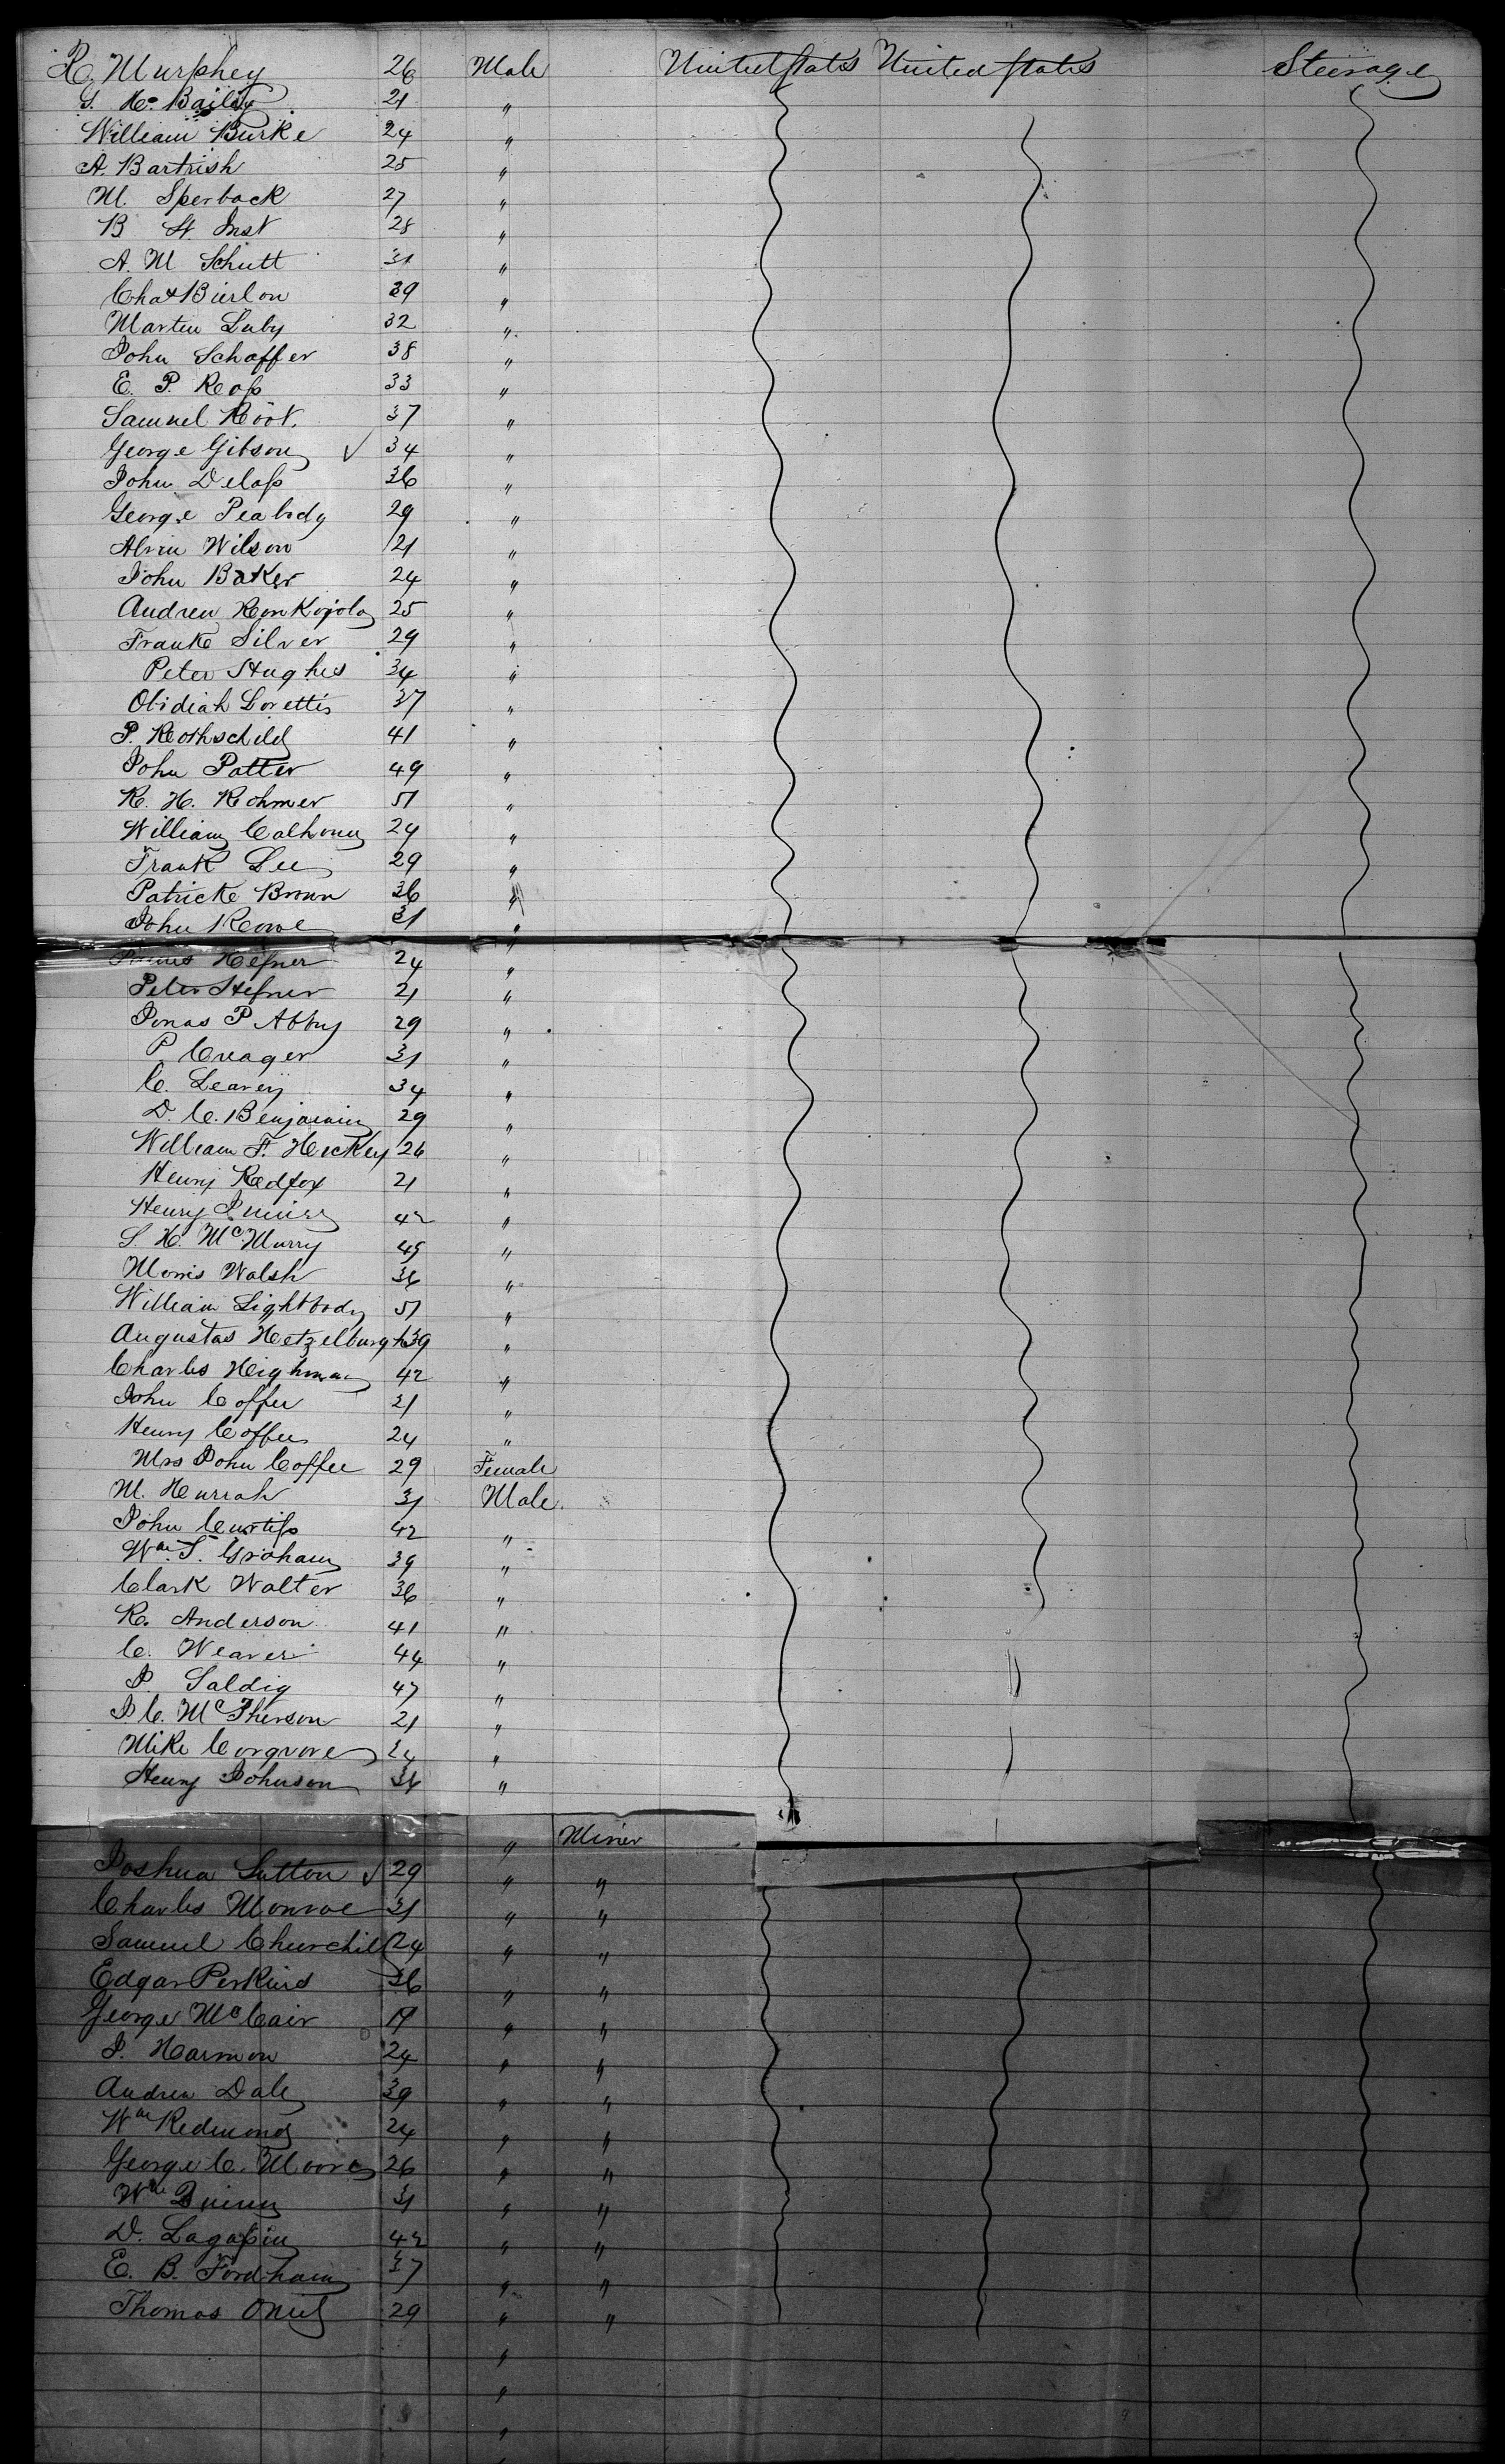 R. Murphey 26 Male United States United States Steerage
G. H. Bailey 21 "
William Burke 24 "
A. Bartrish 25 "
M. Sperback 27 "
B 28 "
A. M Schutt 31 "
Chas Burlon 39 "
Martin Luby 32 "
John Schaffer 38 "
E. P. Ross 33 "
Samuel Root. 37 "
George Gibson ✓ 34 "
John Delass 36 "
George Peabody 29 "
Alvin Wilson 21 "
John Baker 24 "
Andrew 25 "
Franke Silver 29 "
Peter Hughes 34 "
Obidiah Lorettis 37 "
P. Rothschild 41 "
John Potter 49 "
R. H. Rohmer 51 "
William Calhoun 24 "
Frank Lee 29 "
Patricke Brown 36 "
John Rowe 31 "
Hefner 24 "
Peter Hefner 21 "
Jonas P Abby 29 "
P. Creager 31 "
C. Leavey 34 "
D. C. Benjamin 29 "
William F. Hickey 26 "
Henry Redfox 21 "
Henry 42 "
S. H. McMurry 45 "
Morris Walsh 36 "
William Lightbody 51 "
Augustas Hetzelburgh 39 "
Charles Highman 42 "
John Coffee 21 "
Henry Coffee 24 "
Mrs John Coffee 29 Female
M. Hurrah 31 Male
John Curtiss 42 "
Wm S. Graham 39 "
Clark Walter 36 "
R. Anderson 41 "
C. Weaver 44 "
J. Saldig 47 "
J. C. McPherson 21 "
Mike Cosgrove 24 "
Henry Johnson 36 "
" Miner
Joshua Sutton ✓ 29 " "
Charles Monroe 31 " "
Samuel Churchill 24 " "
Edgar Perkins 36 " "
George McCair 19 " "
J. Harmon 24 " "
Andrew Dale 39 " "
Wm Redmond 24 " "
George C. Moore 26 " "
Wm Quinn 31 " "
D. Lagassin 42 " "
E. B. Fordham 37 " "
Thomas Oniel 29 " "
"
"
"